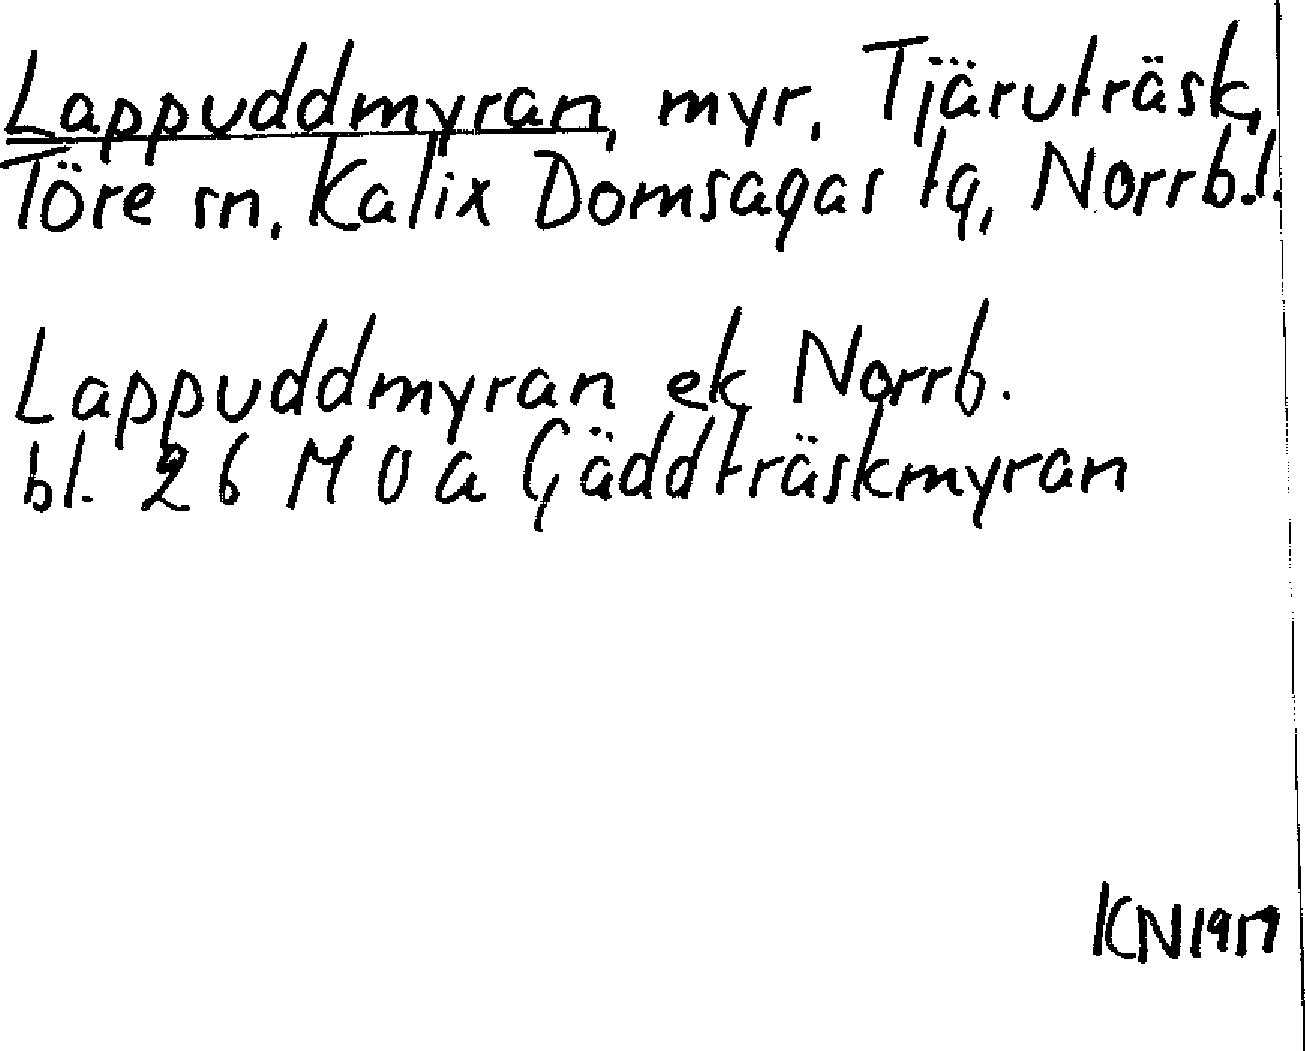 Lappuddmyran, myr, Tjäruträsk,
Töre sn, Kalix Domsagas tg, Norrb.l.
Lappuddmyran ek Norrb.
bl. 26 M O a Gäddträskmyran